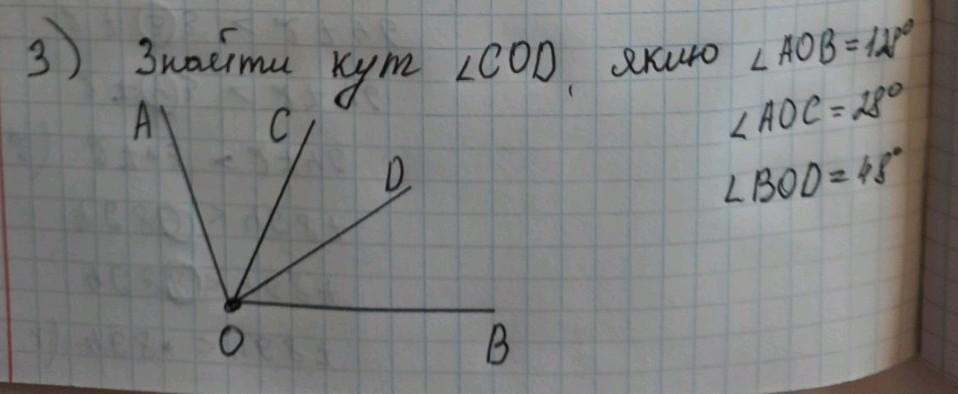 3) Знайти кут ∠COD, якщо ∠AOB = 128°
∠AOC = 28°
∠BOD = 48°
A C D
O B